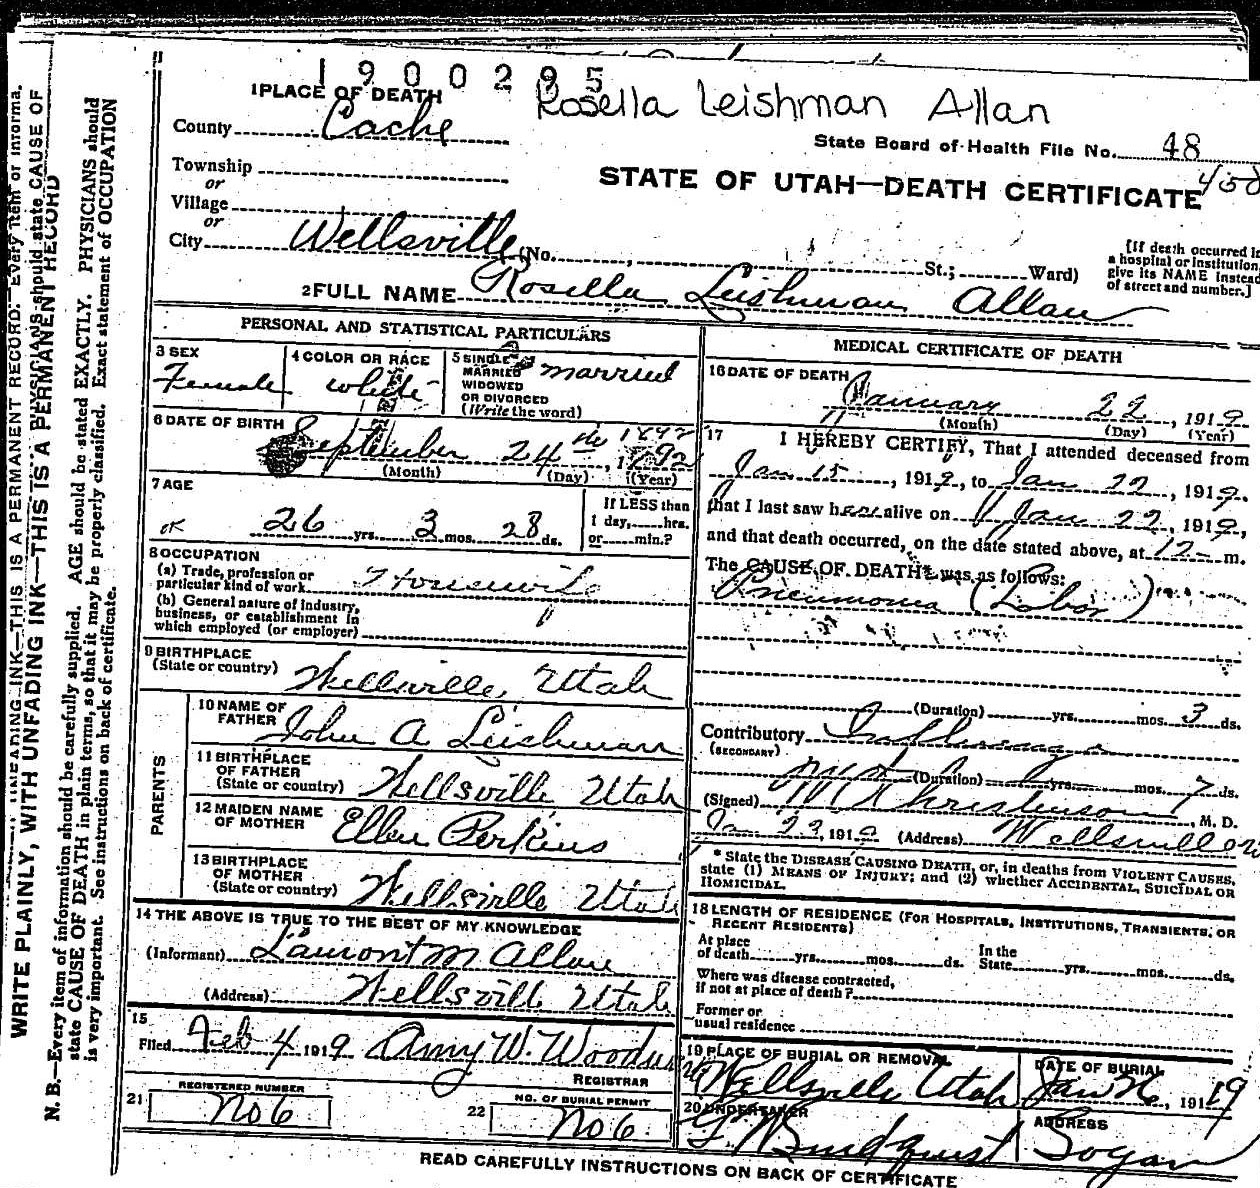 1900295
Rosella Leishman Allan
1 PLACE OF DEATH
County Cache
State Board of Health File No. 48
458
Township
or
Village
or
City Wellsville (No. , St.; Ward)
STATE OF UTAH—DEATH CERTIFICATE
[If death occurred in
a hospital or institution,
give its NAME instead
of street and number.]
2 FULL NAME Rosella Leishman Allan
PERSONAL AND STATISTICAL PARTICULARS
3 SEX
Female
4 COLOR OR RACE
white
5 SINGLE
MARRIED
WIDOWED
OR DIVORCED
(Write the word)
married
6 DATE OF BIRTH
September 24th, 1892
1892
(Month) (Day) (Year)
7 AGE
OK 26 yrs. 3 mos. 28 ds.
If LESS than
1 day, hrs.
or min.?
8 OCCUPATION
(a) Trade, profession or
particular kind of work Housewife
(b) General nature of industry,
business, or establishment in
which employed (or employer)
9 BIRTHPLACE
(State or country) Wellsville, Utah
PARENTS
10 NAME OF
FATHER John A Leishman
11 BIRTHPLACE
OF FATHER
(State or country) Wellsville Utah
12 MAIDEN NAME
OF MOTHER Ellen Perkins
13 BIRTHPLACE
OF MOTHER
(State or country) Wellsville Utah
14 THE ABOVE IS TRUE TO THE BEST OF MY KNOWLEDGE
(Informant) Lamont M Allan
(Address) Wellsville Utah
15
Filed Feb 4 1919 Amy W.
REGISTRAR
REGISTERED NUMBER
21 No 6
NO. OF BURIAL PERMIT
22 No 6
MEDICAL CERTIFICATE OF DEATH
16 DATE OF DEATH
January 22, 1919
(Month) (Day) (Year)
17 I HEREBY CERTIFY, That I attended deceased from
Jan 15, 1919, to Jan 22, 1919,
that I last saw her alive on Jan 22, 1919,
and that death occurred, on the date stated above, at 12 m.
The CAUSE OF DEATH* was as follows:
Pneumonia (Lobar)
(Duration) yrs. mos. 3 ds.
Contributory Influenza
(SECONDARY)
(Duration) yrs. mos. 7 ds.
(Signed) Christenson, M. D.
Jan 23, 1919 (Address) Wellsville
* State the DISEASE CAUSING DEATH, or, in deaths from VIOLENT CAUSES,
state (1) MEANS OF INJURY; and (2) whether ACCIDENTAL, SUICIDAL OR
HOMICIDAL.
18 LENGTH OF RESIDENCE (FOR HOSPITALS, INSTITUTIONS, TRANSIENTS, OR
RECENT RESIDENTS)
At place
of death yrs. mos. ds.
In the
State yrs. mos. ds.
Where was disease contracted,
if not at place of death?
Former or
usual residence
19 PLACE OF BURIAL OR REMOVAL
Wellsville Utah
DATE OF BURIAL
Jan 26, 1919
20 UNDERTAKER
ADDRESS
Logan
READ CAREFULLY INSTRUCTIONS ON BACK OF CERTIFICATE
WRITE PLAINLY, WITH UNFADING INK—THIS IS A PERMANENT RECORD
N. B.—Every item of information should be carefully supplied. AGE should be stated EXACTLY. PHYSICIANS should
state CAUSE OF DEATH in plain terms, so that it may be properly classified. Exact statement of OCCUPATION
is very important. See instructions on back of certificate.